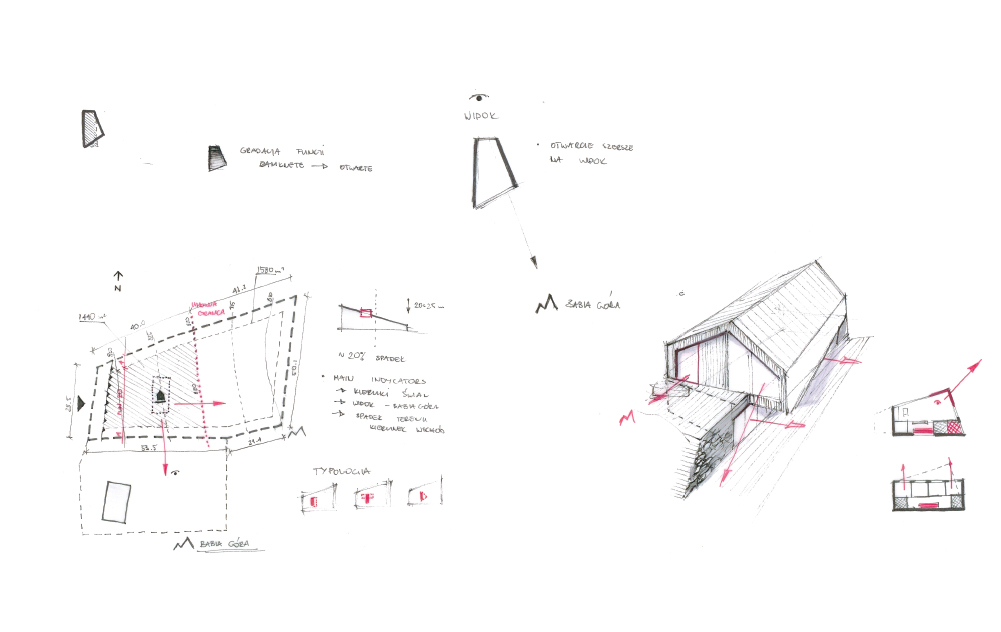 WIDOK
GRADACJA FUNKCJI
ZAMKNIĘTE → OTWARTE
• OTWARCIE SZERSZE
NA WIDOK
BABIA GÓRA
N
1580 m²
41.2
1440 m²
40.0
20-25 m
N 20% SPADEK
• MAIN INDYCATORS
→ KIERUNKI ŚWIAT.
→ WIDOK - BABIA GÓRA
→ SPADEK TERENU
KIERUNEK WSCHÓD
53.5
21.4
TYPOLOGIA
BABIA GÓRA